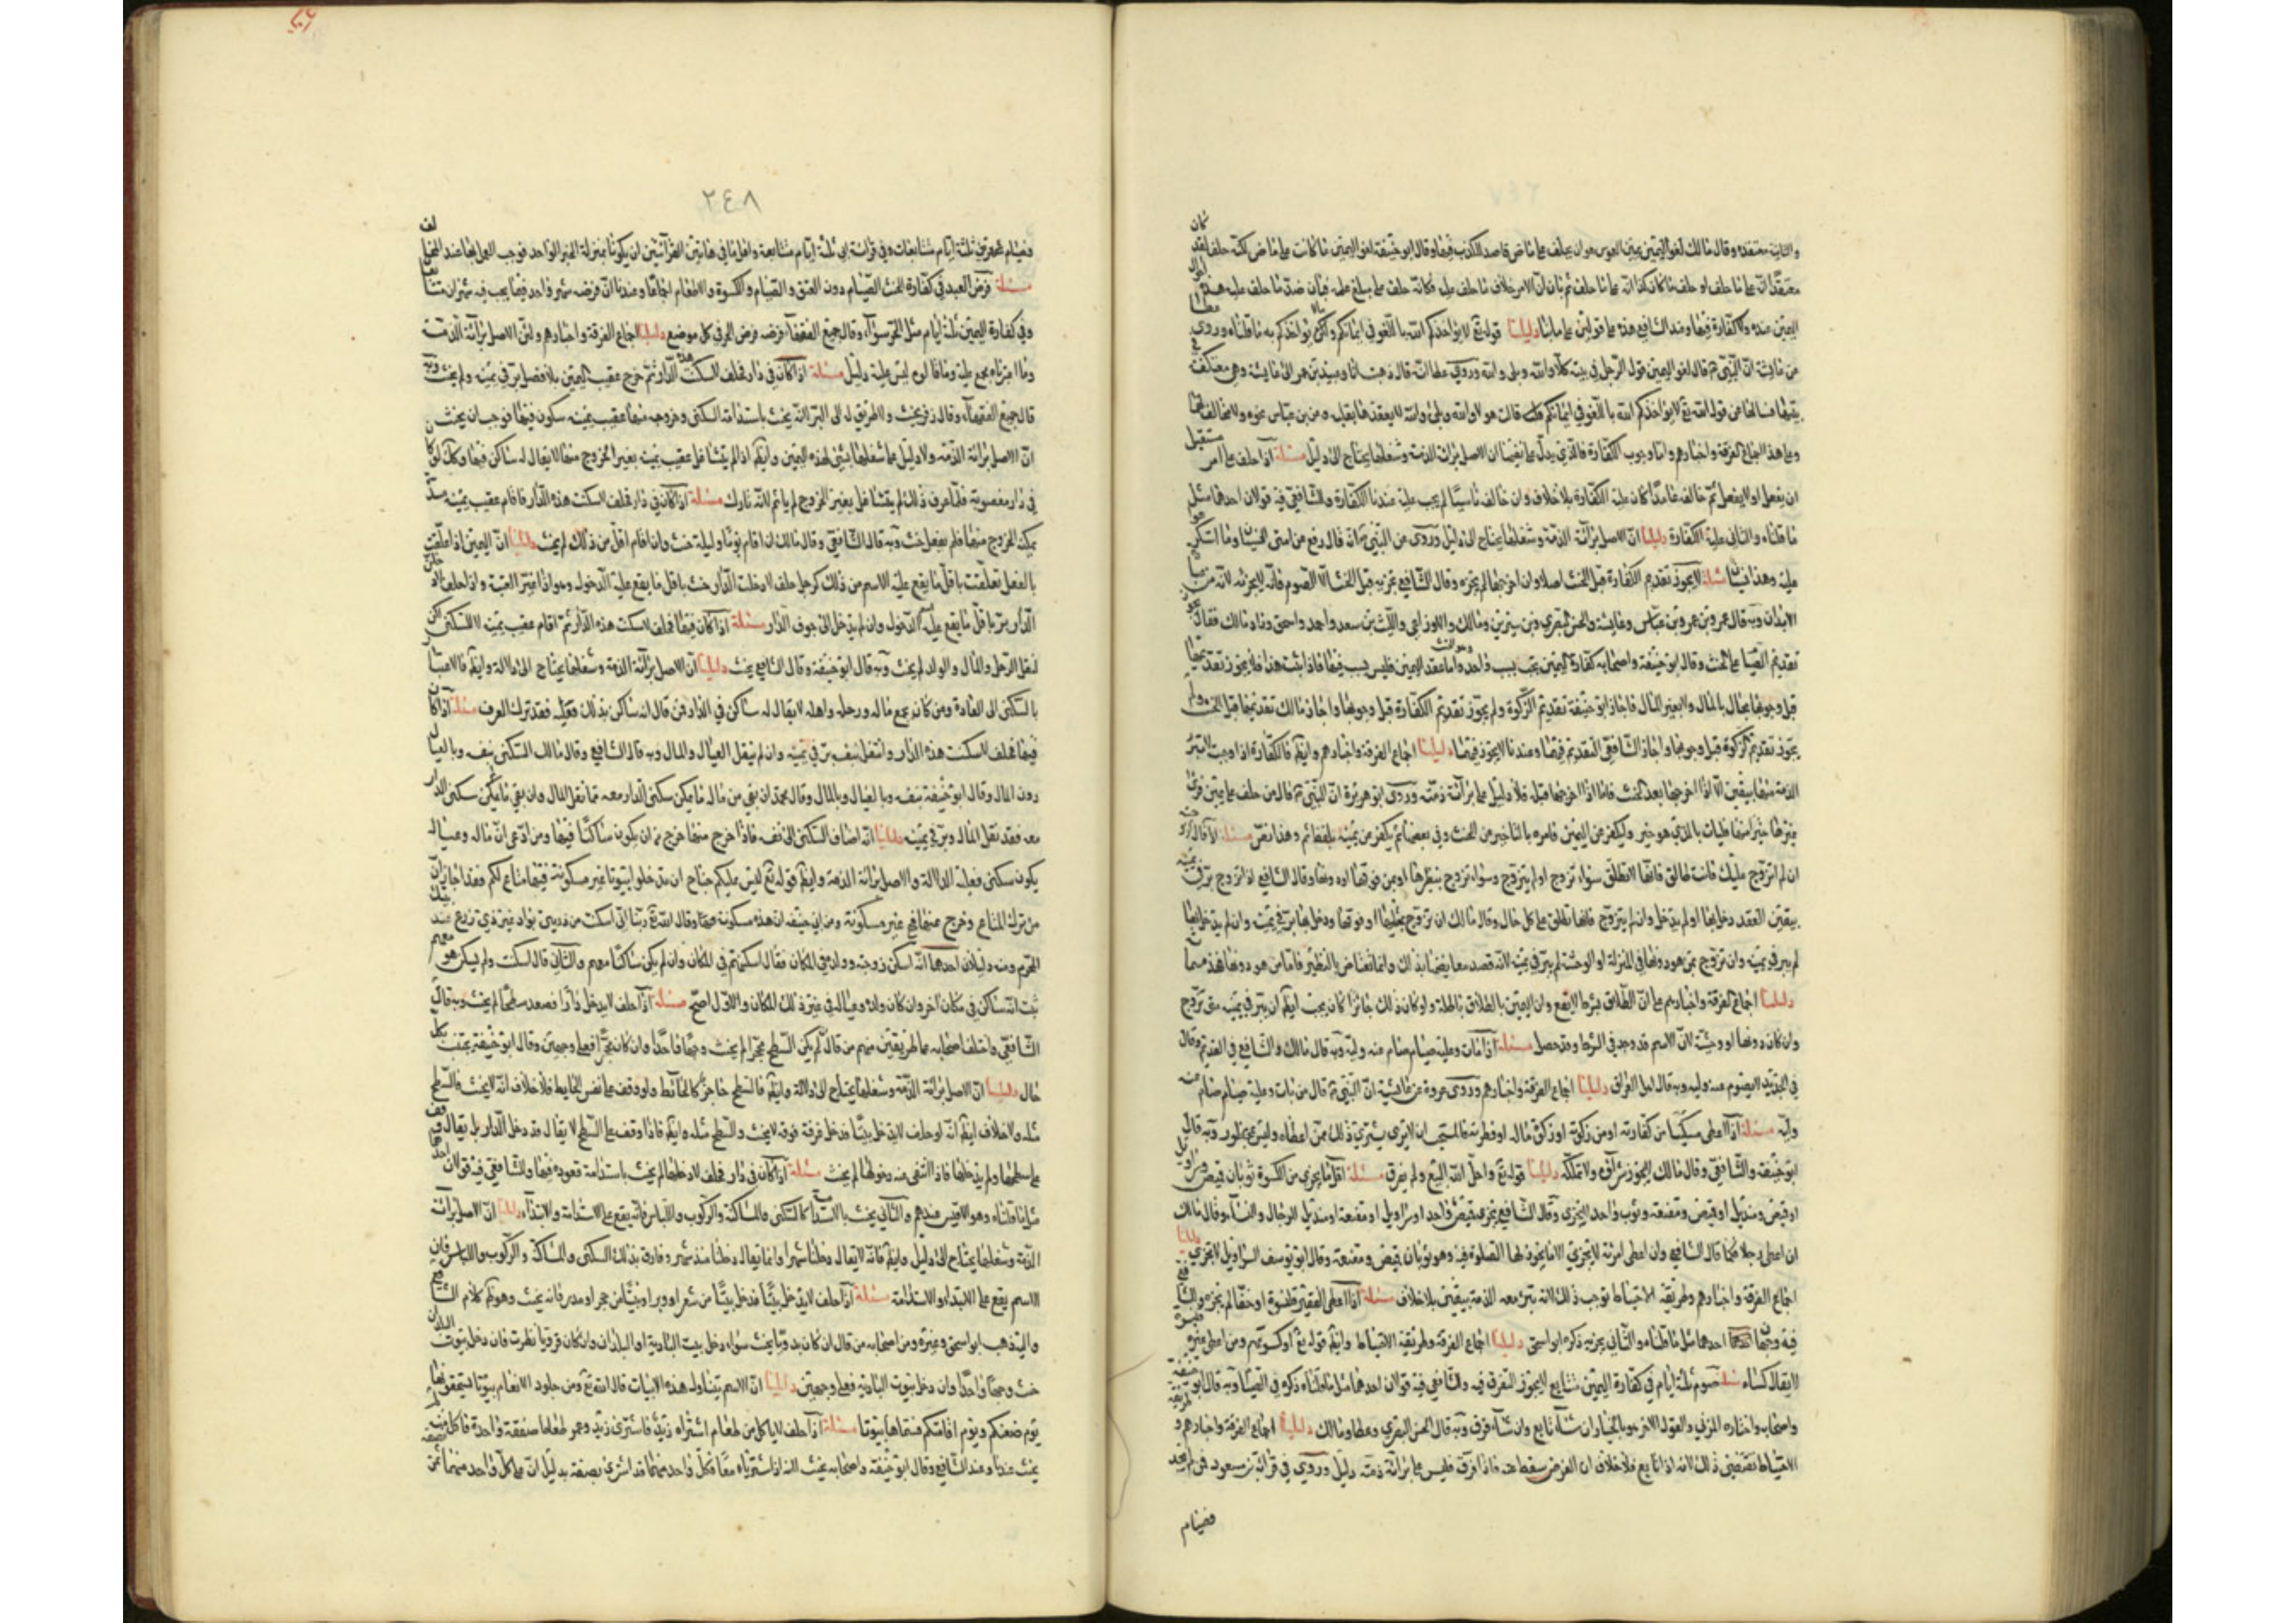 والثانية منعقدة وقال مالك لغو اليمين يمين الغموس هو ان يحلف على ماض قاصدا للكذب فيها وقال ابو حنيفة لغو اليمين ما كانت على ماض لكنه حلف لقد كان
معتقدا انه على ما حلف او حلف ما كان كذا انه على ما حلف ثم بان ان الامر خلاف ما حلف عليه فكانه حلف على مبلغ علمه فبان ضد ما حلف عليه هل
اليمين عنده ولا كفارة فيها وعند الشافعي هذه على قولين على ما بينا دليلنا قوله تع لا يؤاخذكم الله باللغو في ايمانكم ولكن يؤاخذكم به ما قلناه وروى
عن عائشة ان النبي ص قال لغو اليمين قول الرجل في بيته كلا والله وبلى والله وروى عطا انه قال ذهبت انا وعبيد بن عمر الى عايشة وهي معتكفة
فسالناها عن قول الله تع لا يؤاخذكم الله باللغو في ايمانكم قالت هو لا والله وبلى والله لا يعقدها بقلبه وعن ابن عباس نحوه ولا مخالف لهما
وعلى هذا اجماع الفرقة واخبارهم واما وجوب الكفارة فالذي يدل على نفيها ان الاصل براءة الذمة وشغلها يحتاج الى دليل مسئلة اذا حلف على امر مستقبل
ان يفعل او لا يفعل ثم خالف عامدا كان عليه الكفارة بلا خلاف وان خالف ناسيا لم يجب عليه عندنا الكفارة وللشافعي فيه قولان احدهما مثل
ما قلناه والثاني عليه الكفارة دليلنا ان الاصل براءة الذمة وشغلها يحتاج الى دليل وروى عن النبي ص انه قال رفع عن امتي الخطا والنسيان وما استكرهوا
عليه وهذا نسيان مسئلة لا يجوز تقديم الكفارة قبل الحنث اصلا وان اخرجها لم يجزه وقال الشافعي يجزيه قبل الحنث الا الصوم فانه لا يجزئه لانه من عبادات
الابدان وبه قال عمر وبن عمر وبن عباس وعايشة والحسن البصري وبن سيرين ومالك والاوزاعي والليث بن سعد واحمد واسحق وزاد مالك فقال يجوز
تقديم الصيام على الحنث وقال ابو حنيفة واصحابه كفارة اليمين تجب بسبب واحد وهو الحنث واما عقد اليمين فليس بسبب فيها فاذا ثبت هذا فلا يجوز تقديمها
قبل وجوبها بحال بالمال ولا بغير المال فاجاز ابو حنيفة تقديم الزكوة ولم يجوز تقديم الكفارة قبل وجوبها واجاز مالك تقديمها قبل الحنث ولم
يجوز تقديم الزكوة قبل وجوبها واجاز الشافعي التقديم فيهما وعندنا لا يجوز فيهما دليلنا اجماع الفرقة واخبارهم وايضا فالكفارة اذا وجبت لا تبرء
الذمة منها بيقين الا اذا اخرجها بعد الحنث فاما اذا اخرجها قبله فلا دليل على براءة ذمته وروى ابو هريرة ان النبي ص قال من حلف على يمين فرأى
غيرها خيرا منها فليات بالذي هو خير وليكفر عن اليمين فامره بالتاخير عن الحنث وفي بعضها ثم يكفر عن يمينه بلفظ ثم وهذا نص مسئلة اذا قال لزوجته
ان لم اتزوج عليك فانت طالق فانها لا تطلق سواء تزوج او لم يتزوج وسواء تزوج بنظيرها او بمن فوقها او دونها وقال الشافعي اذا تزوج بر في يمينه
بيقين العقد دخل بها او لم يدخل وان لم يتزوج فانها تطلق على كل حال وقال مالك ان تزوج بمثلها او فوقها ودخل بها بر في يمينه وان لم يدخل بها
لم يبر في يمينه وان تزوج بمن هو دونها في المنزلة او الوحشة لم يبر في يمينه
دليلنا اجماع الفرقة واخبارهم على ان الطلاق بشرط لا يقع وان اليمين بالطلاق باطلة ولو كان ذلك جائزا لكان يجب ايضا ان يبر في يمينه متى تزوج
وان كان دونها او وحشة لان الاسم قد وجد في الشرط وقد حصل مسئلة اذا مات وعليه صيام صام عنه وليه وبه قال مالك والشافعي في القديم وقال
في الجديد لا يصوم عنه وليه وبه قال اهل العراق دليلنا اجماع الفرقة واخبارهم وروى عروة عن عايشة ان النبي ص قال من مات وعليه صيام صام عنه
وليه مسئلة اذا اعطى مسكينا من كفارته او من زكوته او زكوة ماله او فطرته فالمستحب ان لا يشتري ذلك ممن اعطاه وليس بمحظور وبه قال
ابو حنيفة والشافعي وقال مالك لا يجوز شراؤه ولا تملكه دليلنا قوله تع واحل الله البيع ولم يفرق مسئلة اقل ما يجزي من الكسوة ثوبان قميص وسراويل
او قميص ومنديل او قميص ومقنعة وثوب واحد لا يجزي وقال الشافعي يجزي قميص واحد او سراويل او مقنعة او منديل للرجال والنساء وقال مالك
ان اعطى رجلا فكما قال الشافعي وان اعطى امراة لا يجزي الا ما يجوز لها الصلوة فيه وهو ثوبان قميص ومقنعة وقال ابو يوسف السراويل لا يجزي دليلنا
اجماع الفرقة واخبارهم وطريقة الاحتياط توجب ذلك لانه تبرئ معه الذمة بيقين بلا خلاف مسئلة اذا اعطى الفقير قلنسوة او خفا لم يجزه وللشافعي
فيه وجهان احدهما مثل ما قلناه والثاني يجزيه ذكره ابو اسحق دليلنا اجماع الفرقة وطريقة الاحتياط وايضا قوله تع او كسوتهم ومن اعطى غيره قلنسوة
لا يقال كساه مسئلة صوم ثلثة ايام في كفارة اليمين متتابع لا يجوز التفرق فيه وللشافعي فيه قولان احدهما مثل ما قلناه ذكره في الصيام وبه قال ابو حنيفة
واصحابه واختاره المزني والقول الاخر هو بالخيار ان شاء تابع وان شاء فرق وبه قال الحسن البصري وعطا ومالك دليلنا اجماع الفرقة واخبارهم وطريقة
الاحتياط تقتضي ذلك لانه اذا تابع فلا خلاف ان الفرض سقط عنه فاذا فرق فليس على براءة ذمته دليل وروي في قراءة بن مسعود فمن لم يجد
فصيام
٢٤٨
فصيام شهرين ثلثة ايام متتابعات وفي قراءة ابي ثلثة ايام متتابعة واقل ما في هاتين القرائتين ان يكونا بمنزلة الخبر الواحد فوجب العمل بها عند المخالف
مسئلة فرض العبد في كفارة الحنث الصيام دون العتق والكسوة والاطعام اتفاقا وعندنا ان فرضه شهر واحد فيما يجب فيه شهران متتابعان
وفي كفارة اليمين ثلثة ايام مثل الحر سواء وقال جميع الفقهاء فرضه فرض الحر في كل موضع دليلنا اجماع الفرقة واخبارهم ولان الاصل براءة الذمة
وما اعتبرناه مجمع عليه وما قالوه ليس عليه دليل مسئلة اذا كان في دار فحلف لا سكنت هذه الدار ثم خرج عقيب اليمين بلا فصل بر في يمينه ولم يحنث وبه
قال جميع الفقهاء وقال زفر يحنث ولا طريق له الى البر لانه يحنث باستدامة السكنى وخروجه منها عقيب يمينه سكون فيها فوجب ان يحنث دليلنا
ان الاصل براءة الذمة ولا دليل على شغلها بشئ لهذه اليمين وايضا اذا لم يتشاغل عقيب يمينه بغير الخروج منها لا يقال له ساكن فيها وكك لو كان
في دار مغصوبة فلما عرف ذلك لم يتشاغل بغير الخروج لم ياثم لانه تارك مسئلة اذا كان في دار فحلف لا سكنت هذه الدار فاقام عقيب يمينه مدة
يمكنه الخروج منها فلم يفعل حنث وبه قال الشافعي وقال مالك ان اقام يوما وليلة حنث وان اقام اقل من ذلك لم يحنث دليلنا ان اليمين اذا علقت
بالفعل تعلقت باقل ما يقع عليه الاسم من ذلك كرجل حلف لا دخلت الدار حنث باقل ما يقع عليه الدخول وهو اذا عبر العتبة واذا حلف لادخلن
الدار بر باقل ما يقع عليه الدخول وان لم يدخل الى جوف الدار مسئلة اذا كان فيها فحلف لا سكنت هذه الدار ثم اقام عقيب يمينه لا للسكنى لكن
لنقل الرحل والمال والولد لم يحنث وبه قال ابو حنيفة وقال الشافعي يحنث دليلنا ان الاصل براءة الذمة وشغلها يحتاج الى دلالة وايضا فالاعتبار
بالسكنى الى العادة ومن كان يجمع ماله ورحله واهله لا يقال له ساكن في الدار فمن قال انه ساكن بذلك فقد ترك العرف مسئلة اذا كان
فيها فحلف لا سكنت هذه الدار وانتقل بنفسه بر في يمينه وان لم ينقل العيال والمال وبه قال الشافعي وقال مالك السكنى بنفسه وبالعيال
دون المال وقال ابو حنيفة بنفسه وبالعيال وبالمال وقال محمد ان بقي من ماله ما يمكن سكنى الدار معه فما نقل المال وان بقي ما لا يمكن سكنى الدار
معه فقد نقل المال وبر في يمينه دليلنا انه اضاف السكنى الى نفسه فاذا خرج منها خرج من ان يكون ساكنا فيها ومن ادعى ان ماله وعياله
يكون سكنى فعليه الدلالة والاصل براءة الذمة وايضا قوله تع ليس عليكم جناح ان تدخلوا بيوتا غير مسكونة فيها متاع لكم فقد اخبر ان
من ترك المتاع وخرج عنها فهي غير مسكونة وعن ابي حنيفة ان هذه مسكونة وقال الله تع ربنا اني اسكنت من ذريتي بواد غير ذي زرع عند بيتك
المحرم ومنه دليلان احدهما انه اسكن زوجته وولده في المكان فقال اسكنتهم في المكان وان لم يكن ساكنا معهم والثاني قال اسكنت ولم يسكن هو معهم
ثبت انه ساكن في مكان اخر وان كان ولده وعياله في غير ذلك المكان والاول اصح مسئلة اذا حلف لا يدخل دارا فصعد سطحها لم يحنث وبه قال
الشافعي واختلف اصحابه على طريقين منهم من قال ان لم يكن السطح محجرا لم يحنث وجها واحدا وان كان محجرا فعلى وجهين وقال ابو حنيفة يحنث بكل
حال دليلنا ان الاصل براءة الذمة وشغلها يحتاج الى دلالة وايضا فالسطح حاجز كالحائط ولو وقف على نفس الحايط فلا خلاف انه لا يحنث فالسطح
مثله ولا خلاف ايضا انه لو حلف لا يدخل بيتا فدخل غرفة فوقه لا يحنث والسطح مثله وايضا فاذا وقف على السطح لا يقال قد دخل الدار بل يقال وقف
على سطحها ولم يدخلها فاذا انتفى عنه دخولها لم يحنث مسئلة اذا كان في دار فحلف لا دخلها لم يحنث باستدامة قعوده فيها وللشافعي فيه قولان احدهما
مثل ما قلناه وهو الاقيس عندهم والثاني يحنث بالاستدامة كالسكنى والمساكنة والركوب واللباس فانه يقع على الاستدامة والابتداء دليلنا ان الاصل براءة
الذمة وشغلها يحتاج الى دليل وايضا فانه لا يقال دخلنا شهرا وانما يقال دخلنا منذ شهر وفارق بذلك السكنى والمساكنة والركوب واللباس فان
الاسم يقع على الابتداء والاستدامة مسئلة اذا حلف لا يدخل بيتا فدخل بيتا من شعر او وبر او بيتا من حجر او مدر فانه يحنث وهو ظاهر كلام الشافعي
واليه ذهب ابو اسحق وغيره ومن اصحابه من قال ان كان بدويا يحنث سواء دخل بيت البادية او البلدان وان كان قرويا نظرت فان دخل بيوت البلدان
حنث وجها واحدا وان دخل بيوت البادية فعلى وجهين دليلنا ان الاسم يتناول هذه الابيات قال الله تع ومن جلود الانعام بيوتا تستخفونها
يوم ظعنكم ويوم اقامتكم فسماها بيوتا مسئلة اذا حلف لا ياكل من طعام اشتراه زيد فاشترى زيد وعمرو طعاما صفقة واحدة فاكل منه لم
يحنث عندنا وعند الشافعي وقال ابو حنيفة واصحابه يحنث لانه اذا اشترياه معا فكل واحد منهما قد اشترى نصفه بدليل ان على كل واحد منهما ثمن نصفه